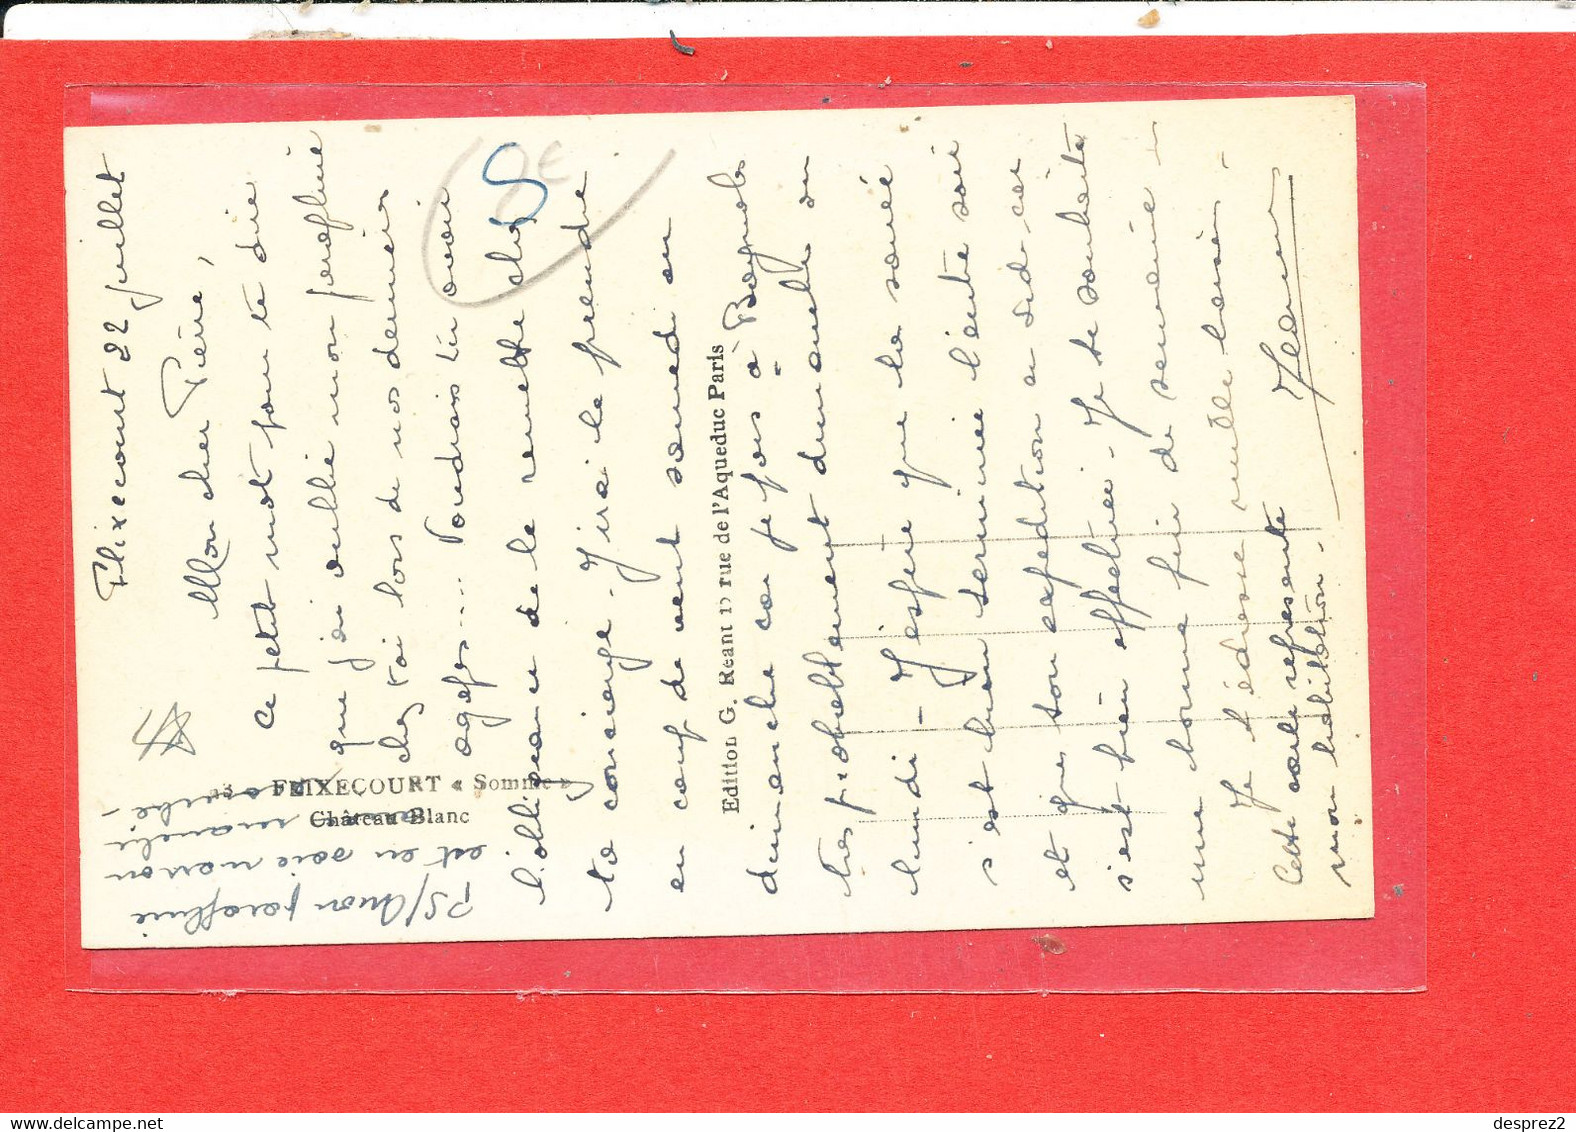 Flixecourt 22 Juillet
Mon cher Pierre,
Ce petit mot pour te dire
que j'ai oublié mon parapluie
chez toi lors de nos dernières
agapes.... Voudrais tu avoir
l'obligeance de le remettre chez
ta concierge - J'irai le prendre
en coup de vent samedi ou
dimanche car je pars à Bagnols
très probablement dimanche ou
lundi - J'espère que la soirée
s'est bien terminée l'autre soir
et que ton expédition en
s'est bien effectuée - Je te souhaite
une bonne fin de semaine -
Je t'adresse mille
Jean
Cette carte représente
mon habitation -
PS/ Mon parapluie
est en soie marron
13 - FLIXECOURT « Somme »
Château Blanc
Edition G. Réant 15 rue de l'Aqueduc Paris
8€
desprez2